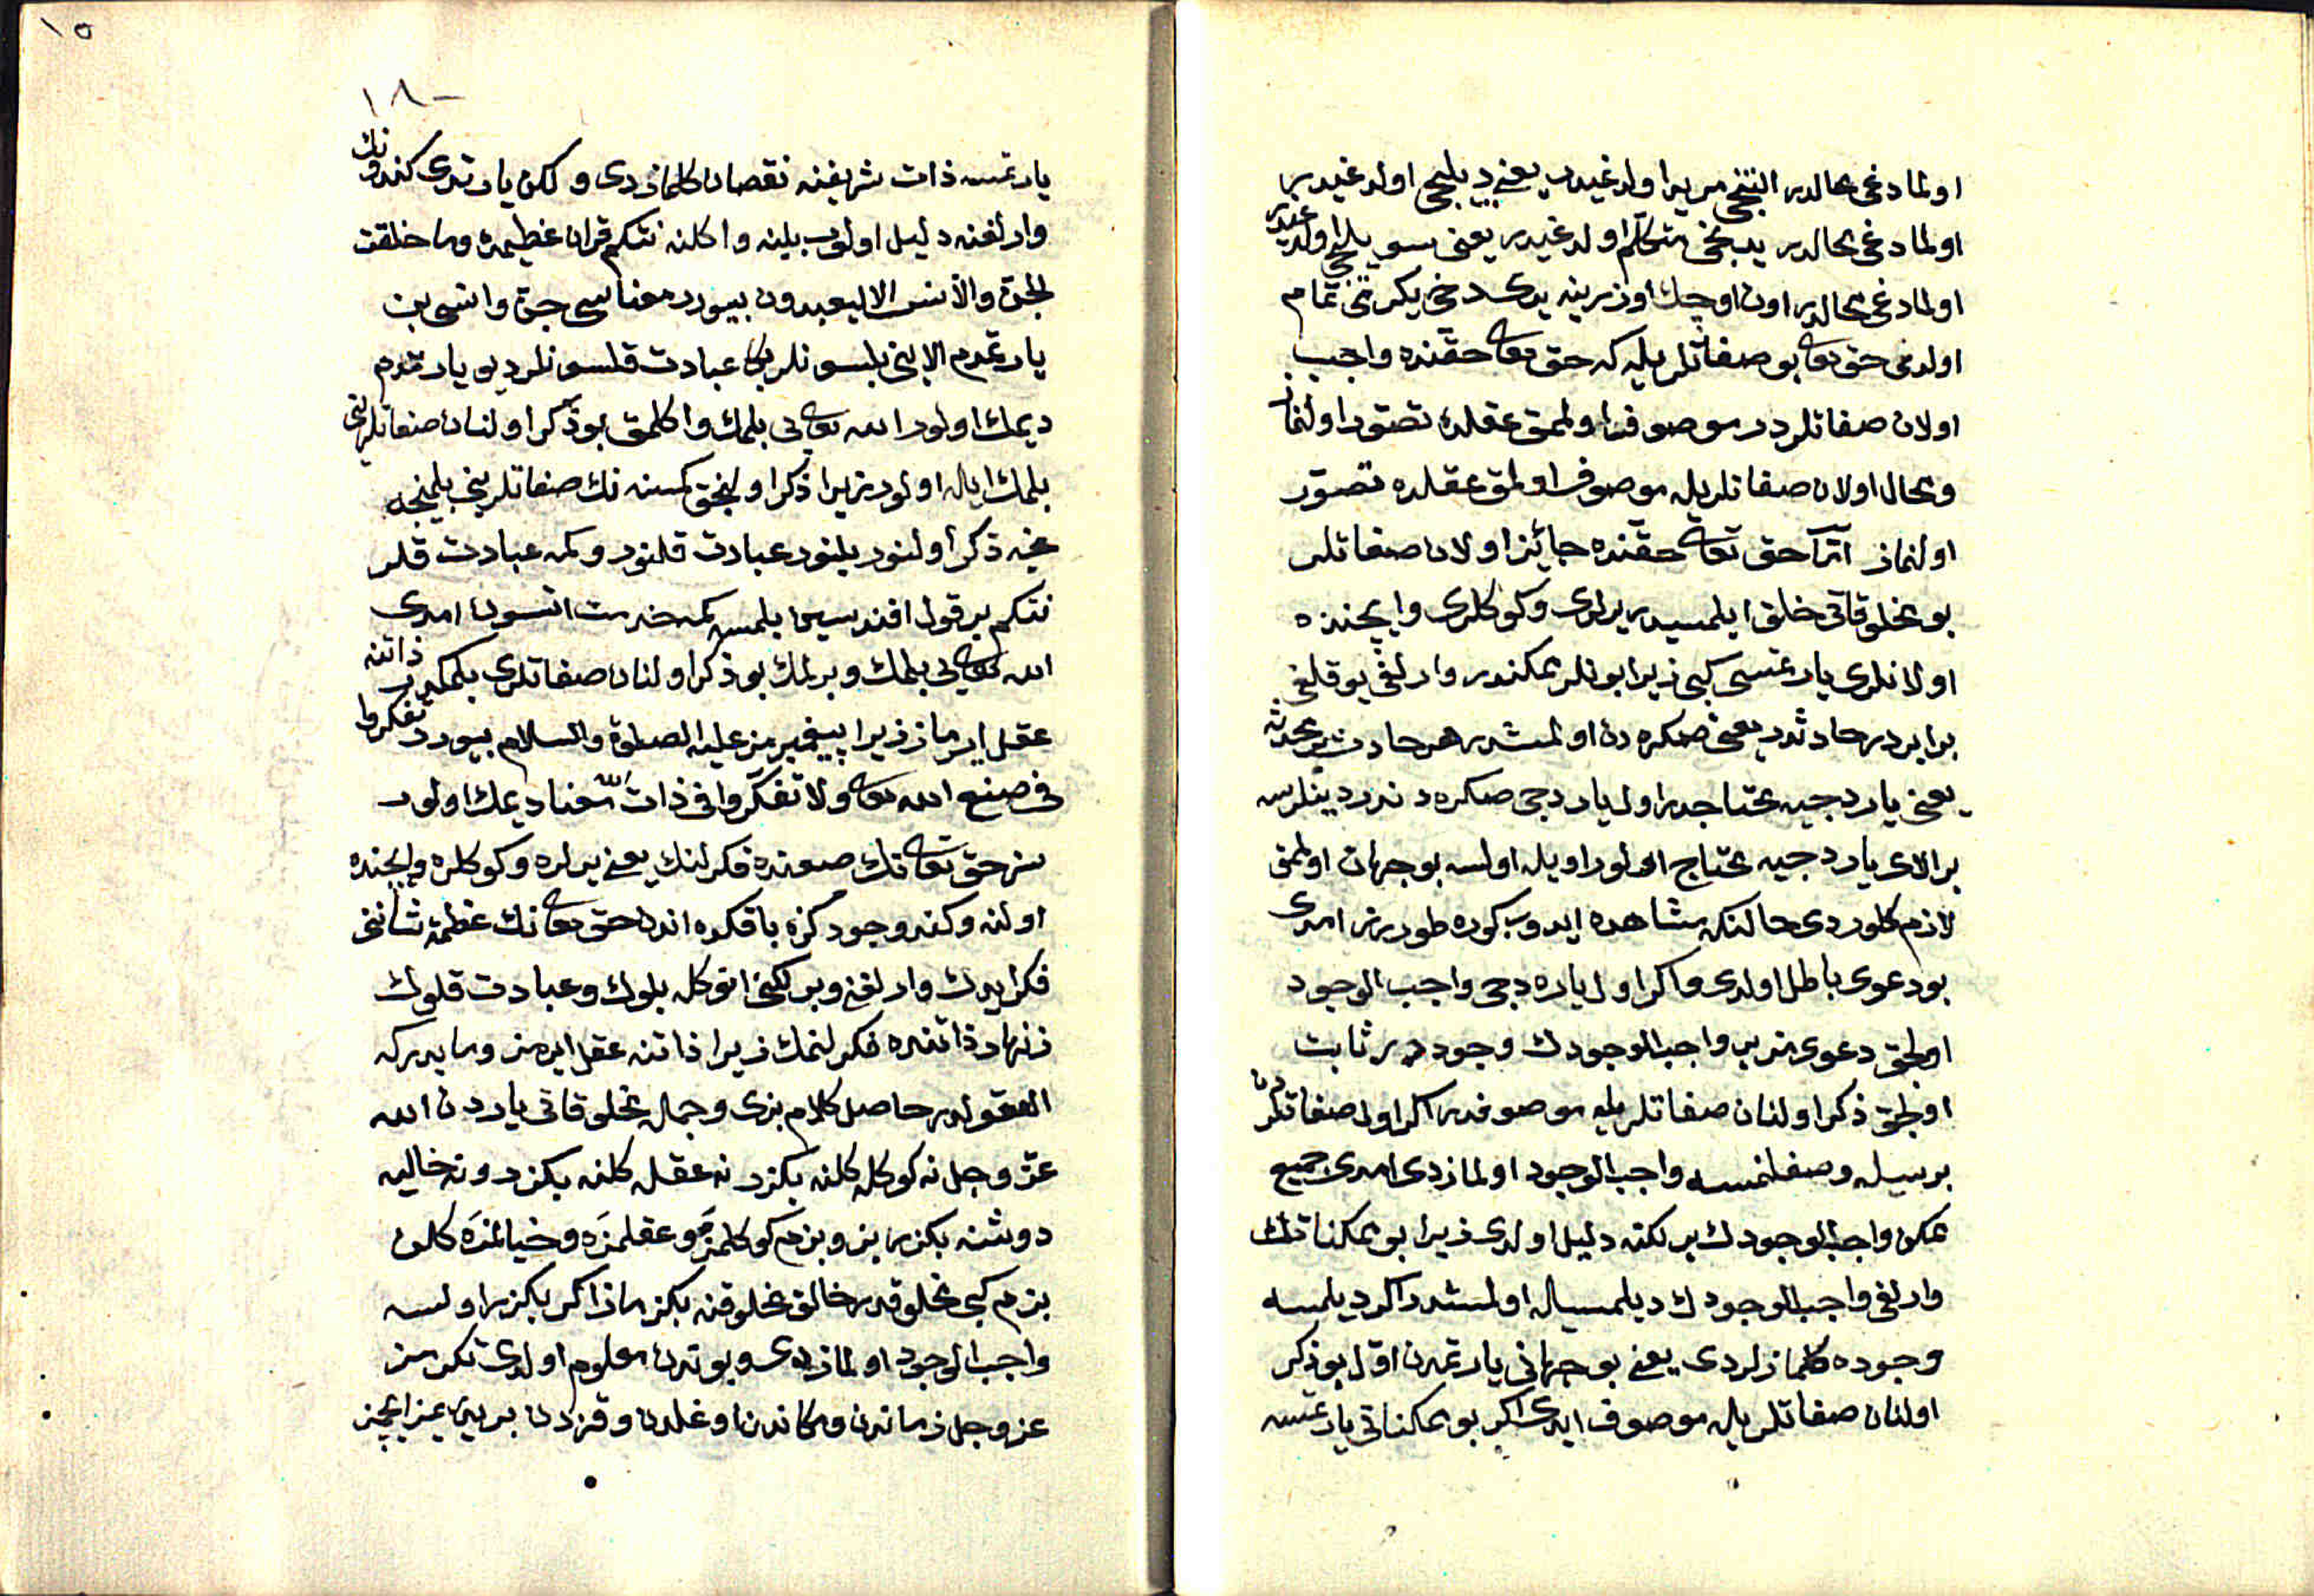 اولمادغی محالدر التنجی مرید اولدغیدر یعنی دیلیجی اولدغیدر
اولمادغی محالدر یدنجی متکلم اولدغیدر یعنی سویلیجی اولدغیدر
اولمادغی محالدر اون اوچك اوزرینه یدی دخی یکرمی تمام
اولدی حق تعالی بو صفاتلریله که حق تعالی حقنده واجب
اولان صفاتلردر موصوف اولمق عقلده تصور اولنماز
ومحال اولان صفاتلریله موصوف اولمق عقلده تصور
اولنماز امّا حق تعالی حقنده جائز اولان صفاتلر
بو مخلوقاتی خلق ایلمسیدر یرلری وکوکلری وایچنده
اولانلری یارتمسی کبی زیرا بونلر ممکندر وارلغی یوقلغی
برابردر حادثدر یعنی صکره دن اولمشدر هر حادث بر محدثه
یعنی یاردجیه محتاجدر اول یاردجی صکره دندر دینلرسه
بر الای یاردجیه محتاج اولور اویله اولسه بو جهان اولمق
لازم کلوردی حالنکه مشاهده ایدوب کوره طورورز امدی
بو دعوی باطل اولدی واکر اول یارهدجی واجب الوجود
اولمق دعوی بزیر واجب الوجودك وجوددر ثابت
اولمق ذکر اولنان صفاتلریله موصوفدر اکر اول صفاتلردن
بریسیله وصفلنمسه واجب الوجود اولمازدی امدی جمیع
ممکن واجب الوجودك برلکنه دلیل اولدی زیرا بو ممکناتك
وارلغی واجب الوجودك دیلمسیله اولمشدر اکر دیلمسه
وجوده کلمازلردی یعنی بو جهانی یارتمدن اول بو ذکر
اولنان صفاتلریله موصوف ایدی اکر بو ممکناتی یارتمسه
١٥
١٨
یارتمسه ذات شریفنه نقصان کلمازدی ولکن یارتدی کندونك
وارلغنه دلیل اولوب بیلینه واکلنه نتکم قران عظیمده وما خلقت
الجن والانس الا لیعبدون بیوردر معناسی جن وانسی بن
یارتمدم الا بنی بلسونلر بکا عبادت قلسونلر دیو یارتدم
دیمك اولور الله تعالی بی بلمك واکلمق بو ذکر اولنان صفاتلرنی
بلمك ایله اولور زیرا ذکر اولنجق کمسنه نك صفاتلرینی بلمنجه
نجه ذکر اولنور بلنور عبادت قلنور وکمه عبادت قلر
نتکم بر قول افندیسین بلمسه کمه خدمت اتسون امدی
الله تعالی بی بلمك وبرلمك بو ذکر اولنان صفاتلری بلمکدر ذاتنه
عقل ایرماز زیرا پیغمبرمز علیه الصلوة والسلام بیوردر تفکروا
فی صنع الله تعالی ولا تفکروا فی ذات الله معنا دیمك اولور
سز حق تعالی نك صنعنده فکرلنك یعنی یرلره وکوکلره وایچنده
اولنه وکندو وجودکزه باقکده اندن حق تعالی نك عظمة شاننی
فکر ایدك وارلغنی وبرلکنی انوکله بلوك وعبادت قلوك
زنهار ذاتنده فکرلنمك زیرا ذاتنه عقل ایرمز وما یدرکه
العقولدر حاصل کلام بزی وجمله مخلوقاتی یاردن الله
عز وجل نه کوکله کلنه بکزر نه عقله کلنه بکزر ونه خیاله
دوشنه بکزر بز وبزم کوکلمزه وعقلمزه وخیالمزه کلن
بزم کبی مخلوقدر خالق مخلوقنه بکزه ماز اکر بکزر اولسه
واجب الوجود اولمازدی وبوندن معلوم اولدی تکرمز
عز وجل زماندن ومکاندن اوغلدن وقزدن بریدر